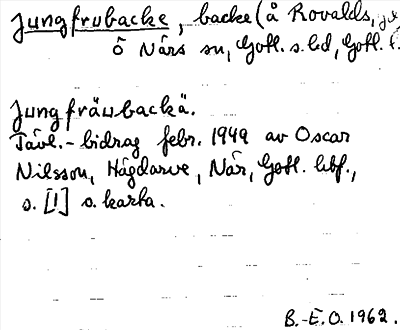 Jungfrubacke, backe (å Rovalds,
ö När sn, Gotl. s. hd, Gotl. l.
Jungfräubackä.
Tävl.-bidrag febr. 1949 av Oscar
Nilsson, Hägdarve, När, Gotl. hbf.,
s. [1] o. karta.
B.-E. O. 1962.